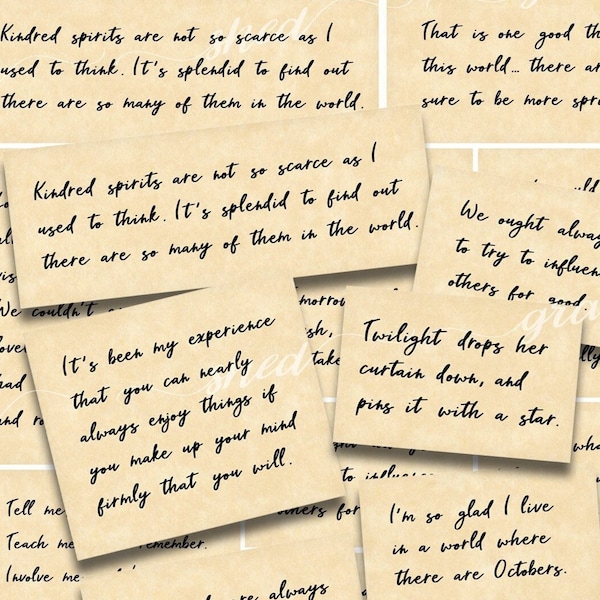 Kindred spirits are not so scarce as I
used to think. It's splendid to find out
there are so many of them in the world.
That is one good th
this world... there ar
sure to be more spri
Kindred spirits are not so scarce as I
used to think. It's splendid to find out
there are so many of them in the world.
We ought alway
to try to influen
others for good
We couldn't
love
had
and
It's been my experience
that you can nearly
always enjoy things if
you make up your mind
firmly that you will.
Twilight drops her
curtain down, and
pins it with a star.
take
to influence
others for
Tell me
Teach me
remember.
Involve me
I'm so glad I live
in a world where
there are Octobers.
are always
shed
shed